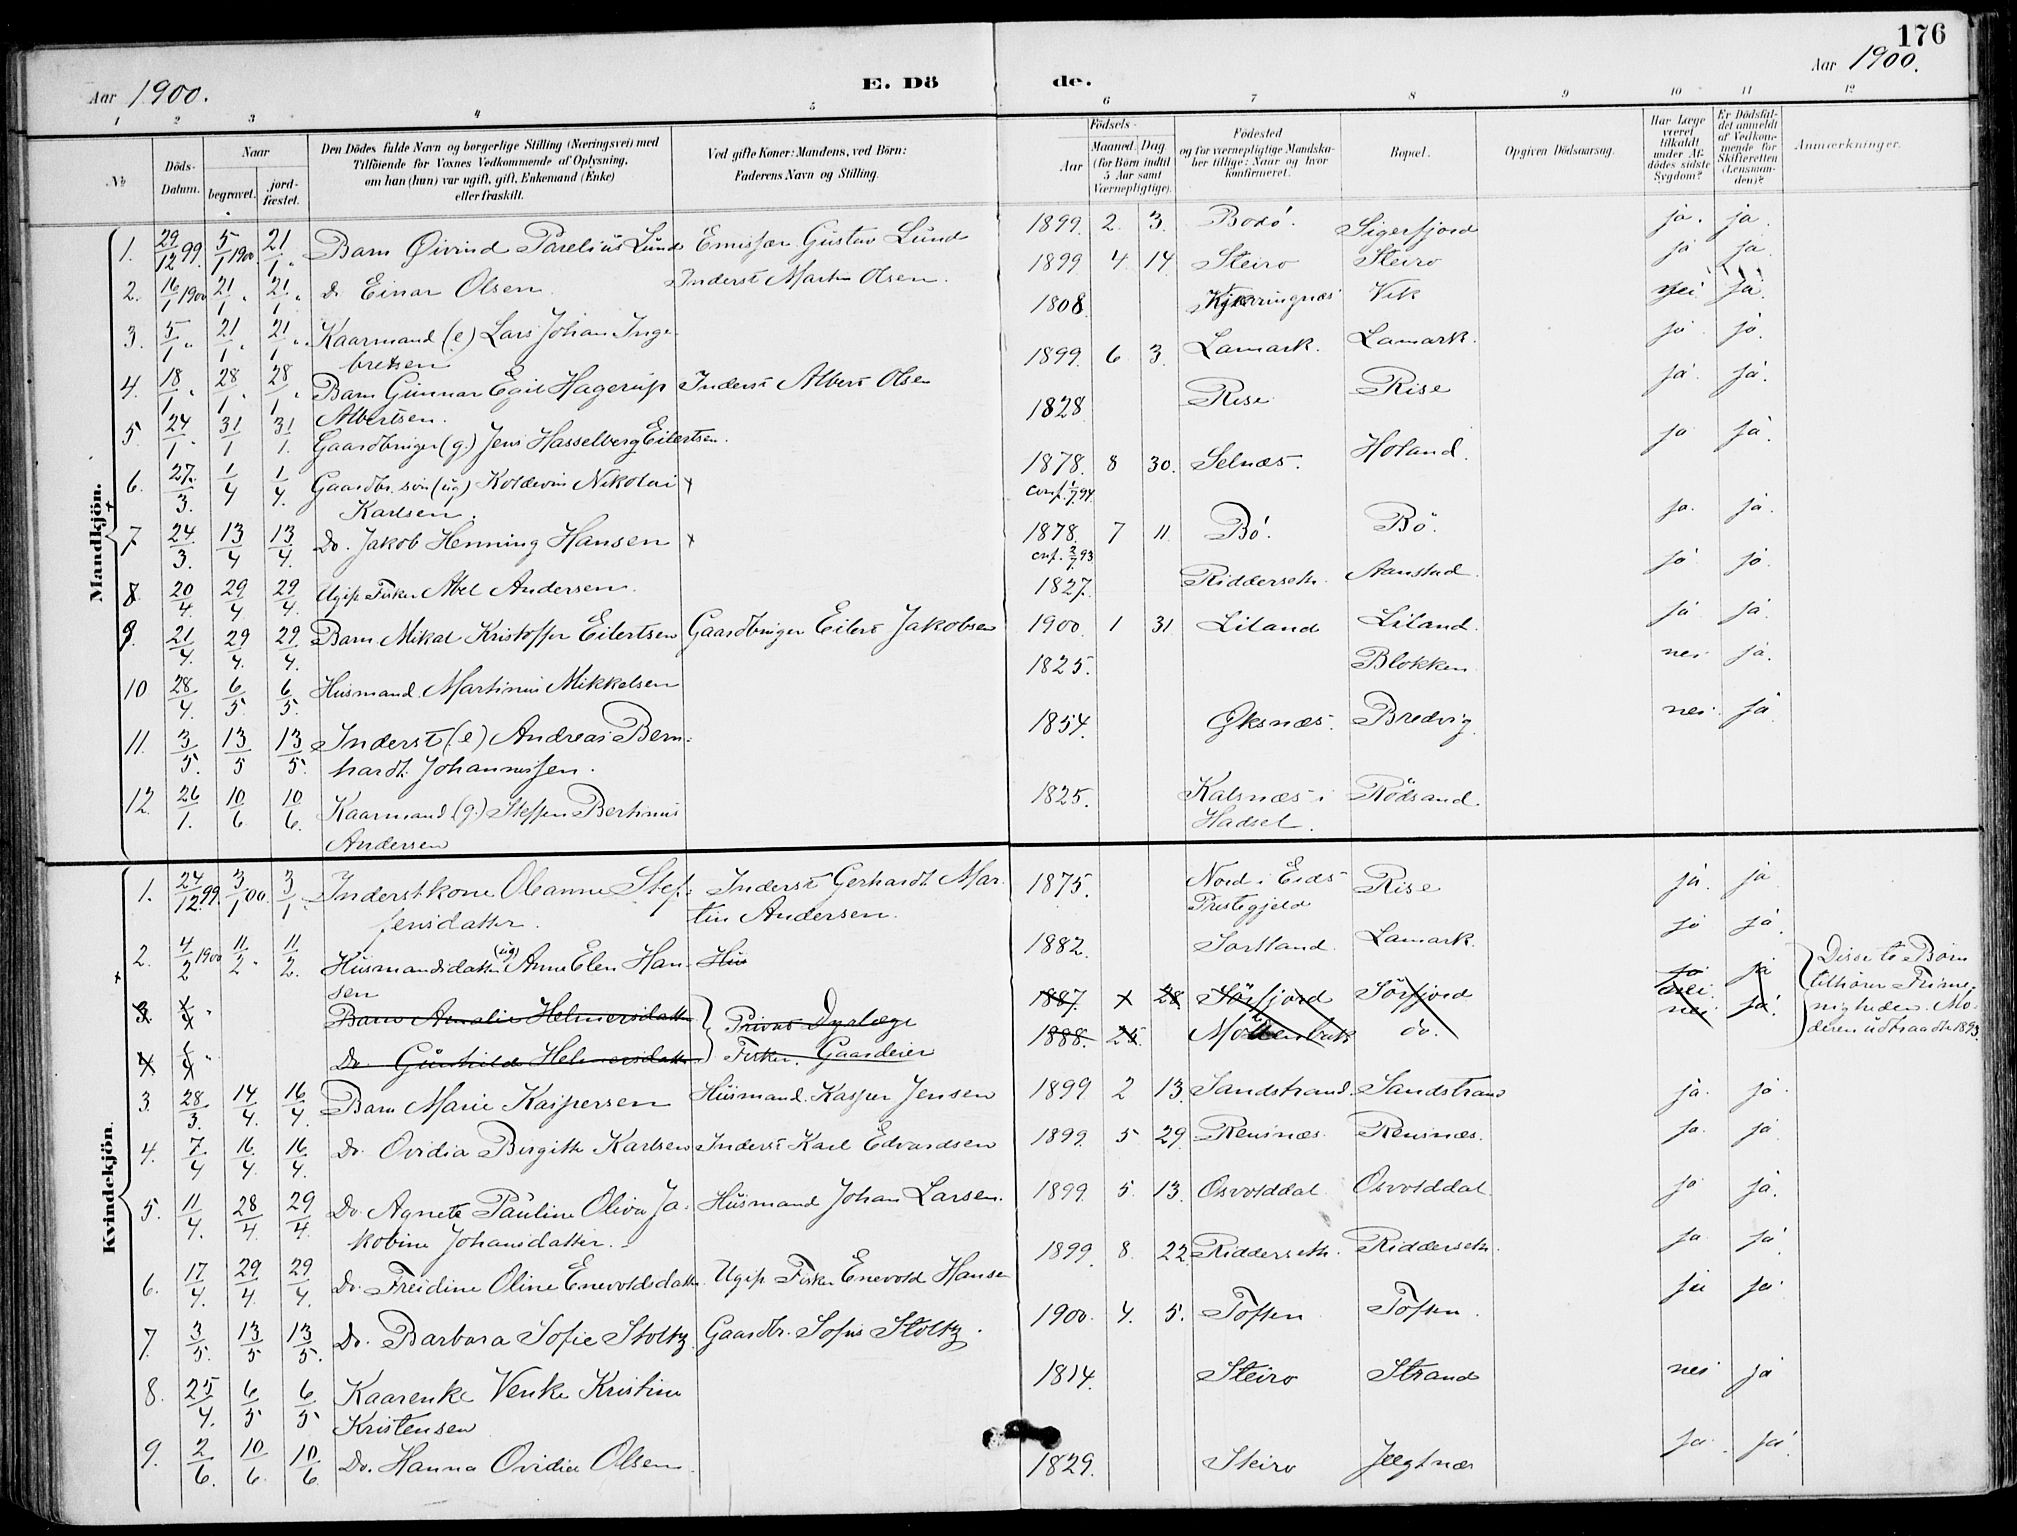 176
Aar 1900.
E. Dö
de.
Aar 1900.
1 2 3 4 5 6 7 8 9 10 11 12
№
Döds-Datum.
Naar
begravet.
jord-fæstet.
Den Dödes fulde Navn og borgerlige Stilling (Næringsvei) med
Tilföiende for Voxnes Vedkommende af Oplysning,
om han (hun) var ugift, gift, Enkemand (Enke)
eller fraskilt.
Ved gifte Koner: Mandens, ved Börn:
Faderens Navn og Stilling.
Födsels-
Aar
Maaned. Dag
(for Börn indtil
5 Aar samt
Værnepligtige).
Födested
og for værnepligtige Mandska-
ber tillige: Naar og hvor
konfirmeret.
Bopæl.
Opgiven Dödsaarsag.
Har Læge
været
tilkaldt
under Af-
dödes sidste
Sygdom?
Er Dödsfal-
det anmeldt
af Vedkom-
mende for
Skifteretten
(Lensman-
den)?
Anmærkninger.
Mandkjön.
1. 29/12 99. 5/1 1900 21/1 " Barn Øivind Parelius Lund Emissær Gustav Lund 1899. 2. 3. Bodö. Sigerfjord ja. ja.
2. 16/1 1900 21/1 " 21/1 " d. Einar Olsen. Inderst Martin Olsen. 1899 4 14 Steiro Steiro ja ja
3. 5/1 " 21/1 " 21/1 " Kaarmand (e) Lars Johan Inge-
bretsen 1808. Kjærringnæs Vik nei ja.
4. 18/1 " 28/1 " 28/1 " Barn Gunnar Egil Hagerup Inderst Albert Olsen 1899. 6 3. Lamark. Lamark. ja. ja.
Albertsen.
5. 24/1 " 31/1 31/1. Gaardbruger (g.) Jens Hasselberg Eilertsen. 1828 Rise Rise ja. ja.
6. 27/3. 1/4 1/4. Gaardbr. søn (ug) Koldevin Nikolai x 1878. 8 30. Selnæs. Holand. ja ja.
Karlsen. conf. 1/7 94.
7 24/3. 13/4 13/4. Do. Jakob Henning Hansen x 1878. 7 11. Bö. Bö. ja. ja.
conf. 2/7 93
8 20/4. 29/4 29/4. Ugift Fisker Abel Andersen. 1827. Ridderseth. Aanstad. ja ja.
9. 21/4. 29/4. 29/4. Barn Mikal Kristoffer Eilertsen Gaardbruger Eilert Jakobsen 1900. 1 31. Liland Liland. ja ja.
10 28/4. 6/5 6/5. Husmand. Martinus Mikkelsen 1825. Blokken nei ja.
11. 3/5. 13/5 13/5. Inderst (e) Andreas Bern-
hardt Johannessen. 1854. Øksnæs. Bredvig nei. ja
12 26/1. 10/6 10/6. Kaarmand (g.) Steffen Bertinus
Andersen 1825. Kalsnæs i
Hadsel. Rödsand.
Kvindekjön.
1. 27/12 99. 3/1 00. 3/1. Inderstkone Oleanna Stef- Inderst Gerhardt Mar- 1875. Nord i Eids Rise ja. ja
fensdatter. tin Andersen. Prestegjeld
2. 4/2 1900 11/2 " 11/2. Husmandsdatter (ug) Anne Elen Han- Hus 1882. Sortland. Lamark. ja ja.
sen
3. Barn Amalie Helmersdatter Privat Dyrlæge 1887. x 28. Sörfjord Sörfjord nei ja
4 Do. Gunhilda Helmersdatter Fisker. Gaardeier 1888. 25. do. nei ja.
Disse to Börn
tilhører Frime-
nigheden. Mo-
deren udtraadte 1893.
3. 28/3. 14/4. 16/4. Barn Marie Kaspersen Husmand. Kasper Jensen 1899 2 13. Sandstrand. Sandstrand ja. ja.
4. 7/4 16/4. 16/4. Do. Ovidia Birgitte Karlsen Inderst Karl Edvardsen 1899. 5 29. Reinsnæs. Reinsnæs. ja. ja
5. 11/4. 28/4 29/4 Do. Agnete Pauline Oliva Ja- Husmand Johan Larsen. 1899. 5. 13. Osvolddal. Osvolddal. ja ja.
kobine Johansdatter.
6. 17/4. 29/4. 29/4. Do. Freidine Oline Enevoldsdatter. Ugift Fisker Enevold Hansen 1899. 8. 22. Ridderseth. Ridderseth. ja. ja
7. 3/5. 13/5 13/5. Do. Barbara Sofie Stoltz. Gaardbr. Sofus Stoltz. 1900. 4. 5. Toften Toften. ja ja
8. 25/4. 6/5 6/5 Kaarenke Venke Kristine
Kristensen 1814. Steiro Strand nei ja
9. 2/6. 10/6. 10/6. Do. Hanna Ovidia Olsen. 1829. Steiro Jægtnæs ja. ja.